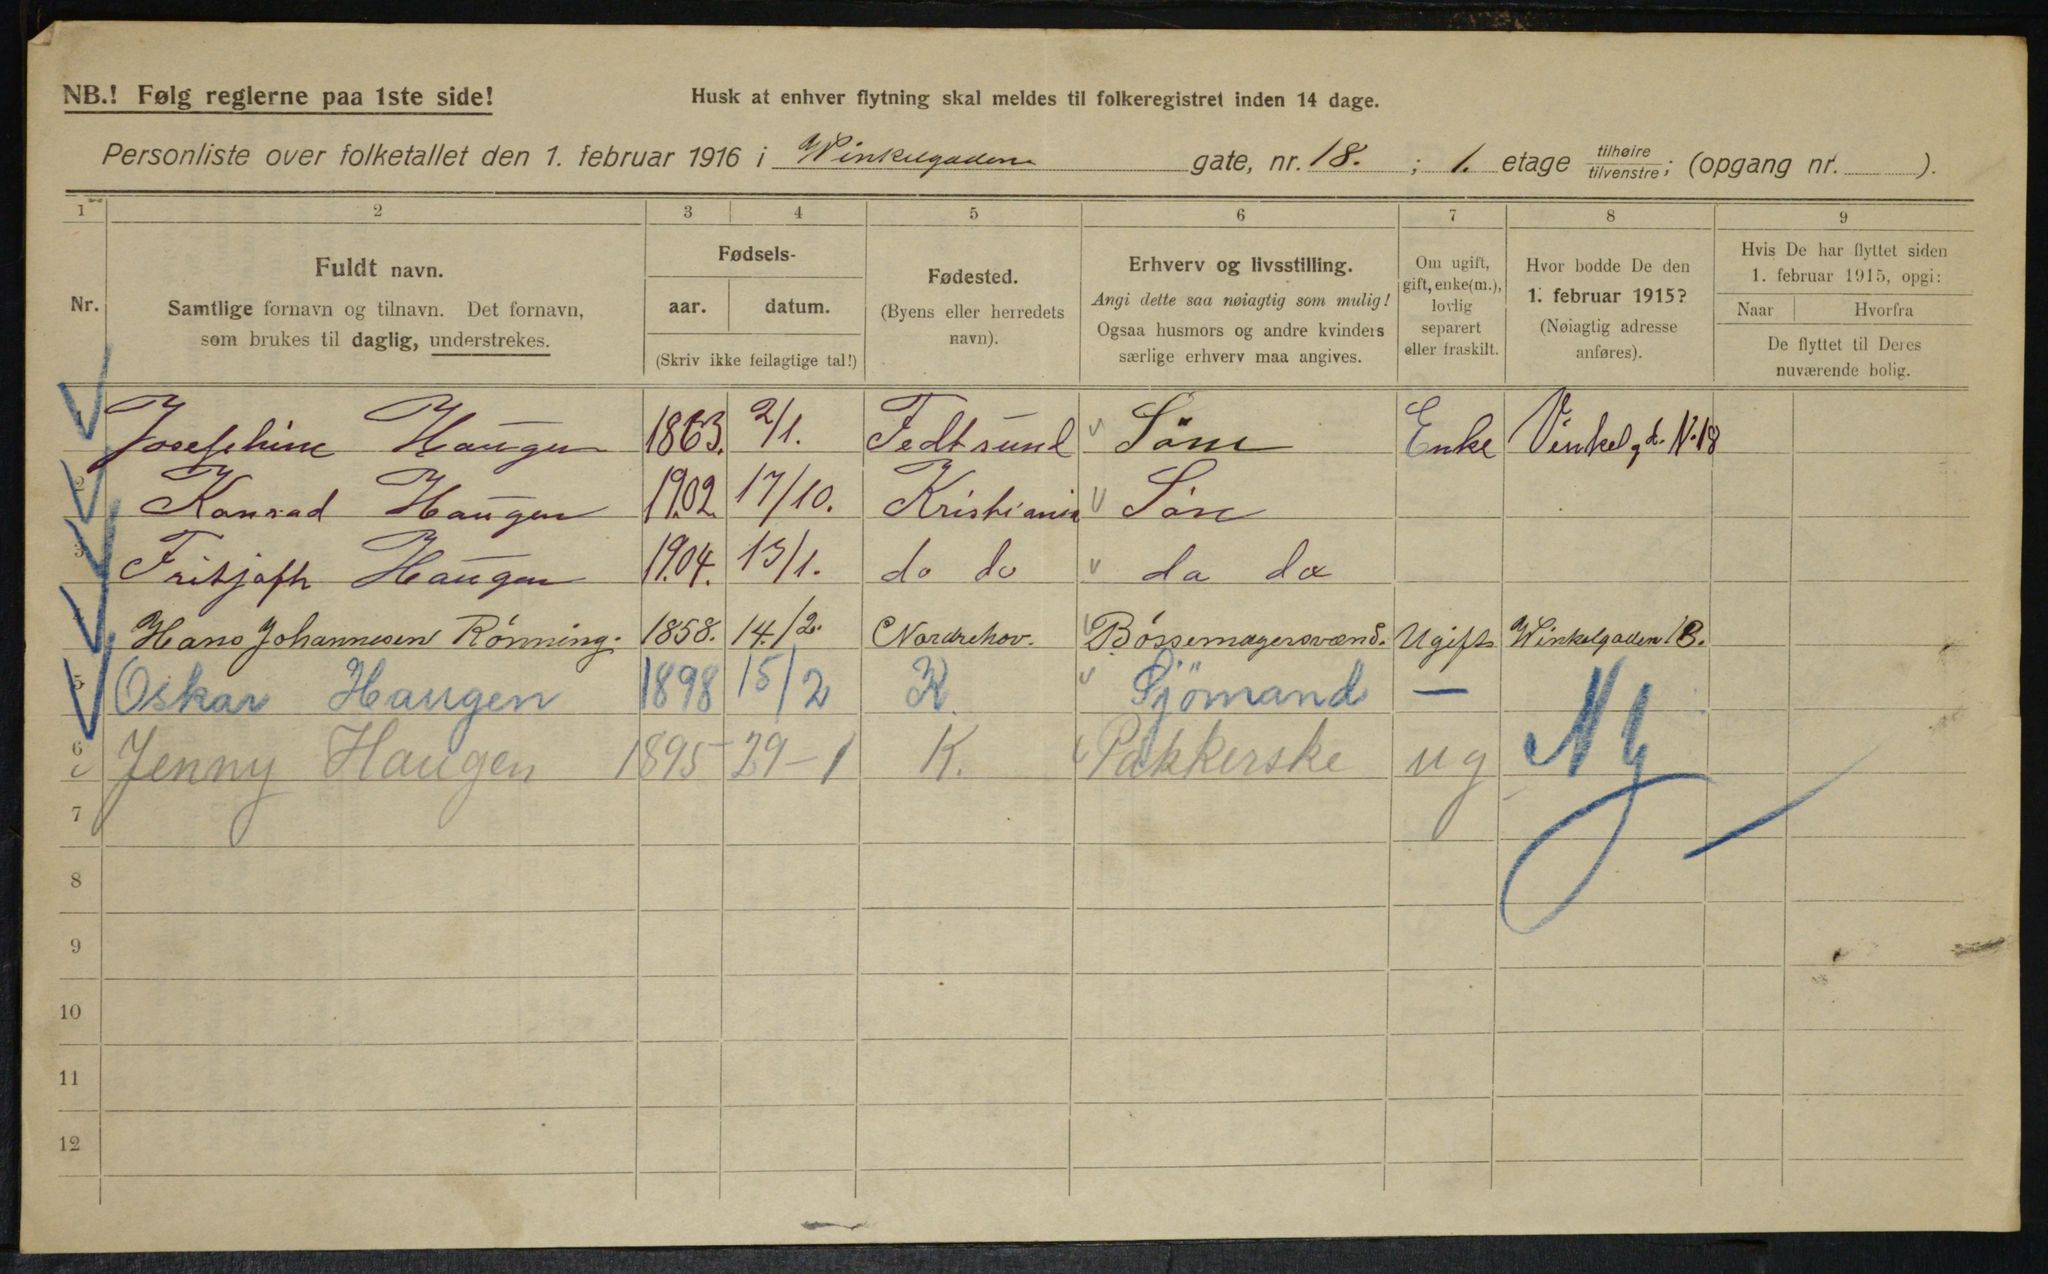 NB.! Følg reglerne paa 1ste side!
Husk at enhver flytning skal meldes til folkeregistret inden 14 dage.
Personliste over folketallet den 1. februar 1916 i Winkelgaden gate, nr. 18. ; 1. etage tilhøire/tilvenstre; (opgang nr. ).
1 2 3 4 5 6 7 8 9
Nr.
Fuldt navn.
Samtlige fornavn og tilnavn. Det fornavn,
som brukes til daglig, understrekes.
Fødsels-
aar. datum.
(Skriv ikke feilagtige tal!)
Fødested.
(Byens eller herredets
navn).
Erhverv og livsstilling.
Angi dette saa nøiagtig som mulig!
Ogsaa husmors og andre kvinders
særlige erhverv maa angives.
Om ugift,
gift, enke(m.),
lovlig
separert
eller fraskilt.
Hvor bodde De den
1. februar 1915?
(Nøiagtig adresse
anføres).
Hvis De har flyttet siden
1. februar 1915, opgi:
Naar Hvorfra
De flyttet til Deres
nuværende bolig.
Josephine Haugen 1863. 2/1. Fedtsund Enke Vinkelgd. N. 18
2 Konrad Haugen 1902. 17/10. Kristiania Søn
3 Fritjofh Haugen 1904. 13/1. do do do do
Hans Johannesen Rønning. 1858. 14/2. Nordrehov. Bøssemagersvend. Ugift Winkelgaden 18.
5 Oskar Haugen 1898 15/2 K. Sjömand —
6 Jenny Haugen 1895 29-1 K. Pakkerske ug
Ny
7
8
9
10
11
12